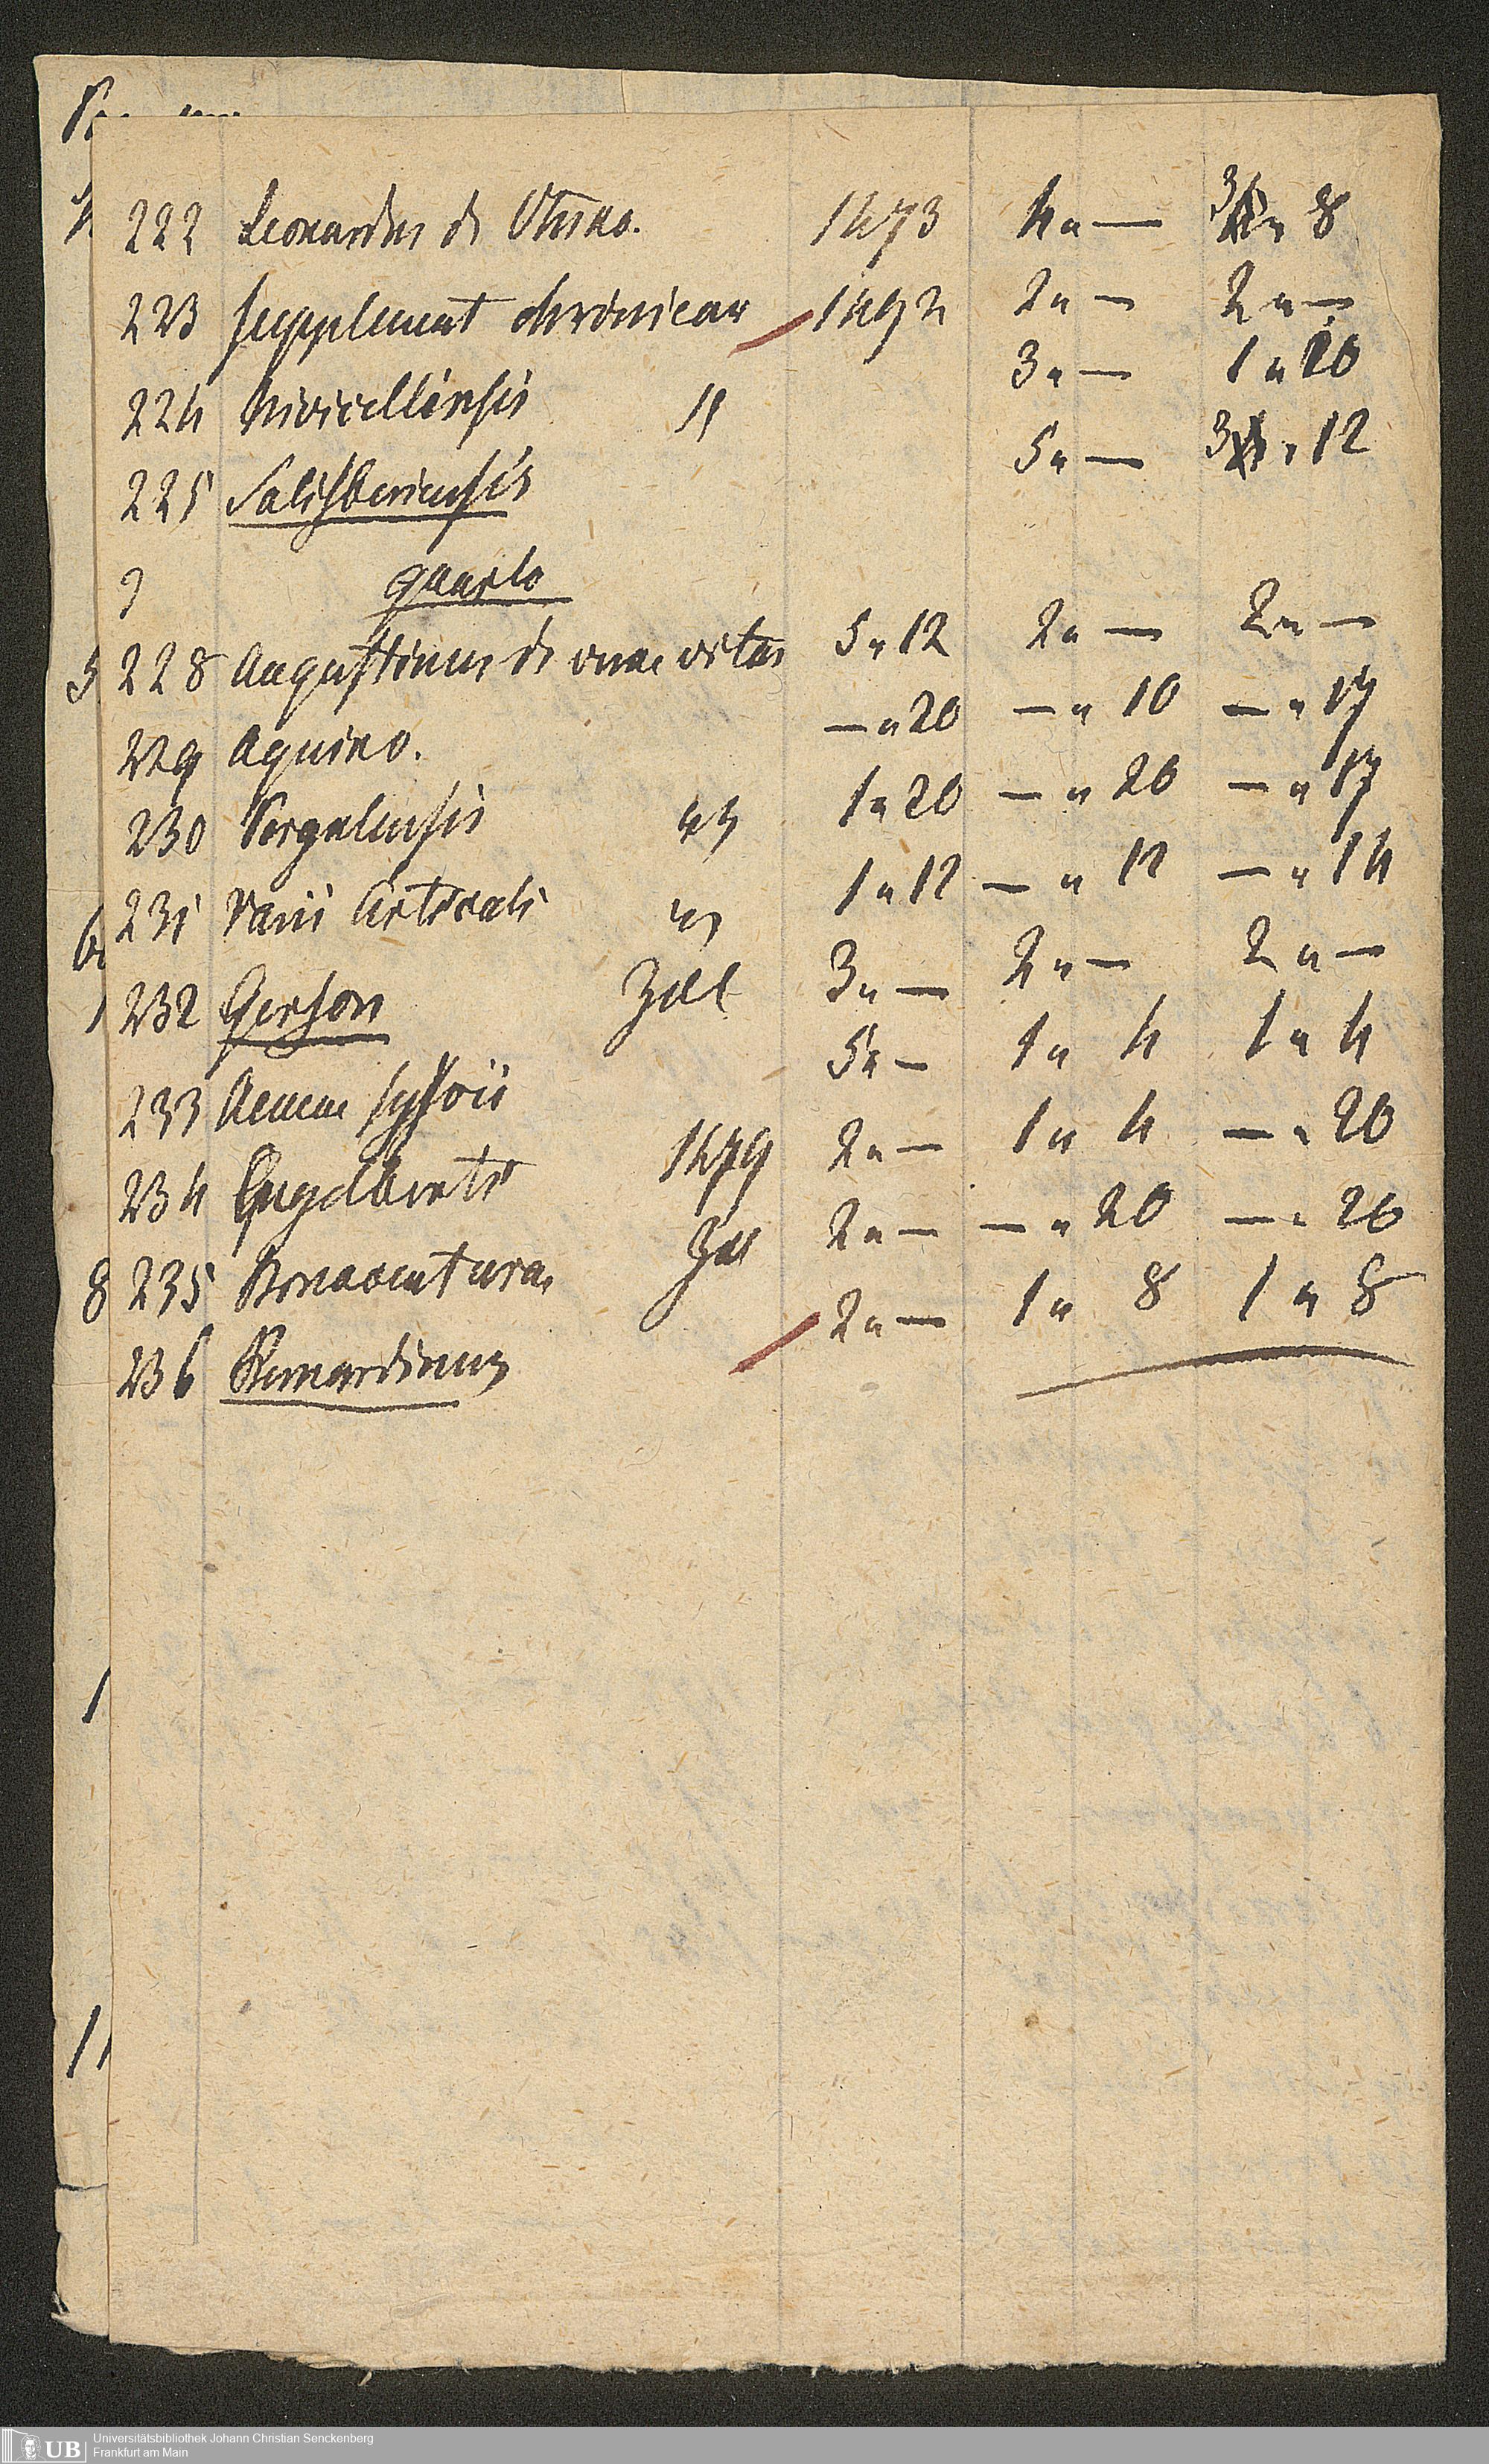 222 Leonardus de Utino. 1473 4 „ — 3 „ 8
223 supplement chronicar 1492 2 „ — 2 „ —
224 Nivicellensis 11 3 „ — 1 „ 20
225 Salisberiensis 5 „ — 3 „ 12
quarto
228 Augustinus de vitas 5 „ 12 2 „ — 2 „ —
229 Aquino. — „ 20 — „ 10 — „ 17
230 1 „ 20 — „ 20 — „ 17
231 Varii Articuli 1 „ 12 — „ 12 — „ 14
232 Gerson Zell 3 „ — 2 „ — 2 „ —
233 Aeneae Sylvii 5 „ — 1 „ 4 1 „ 4
234 Engelberti 1479 2 „ — 1 „ 4 — „ 20
235 Bonaventurae Zell 2 „ — — „ 20 — „ 20
236 Bernardinus 2 „ — 1 „ 8 1 „ 8
UB Universitätsbibliothek Johann Christian Senckenberg
Frankfurt am Main